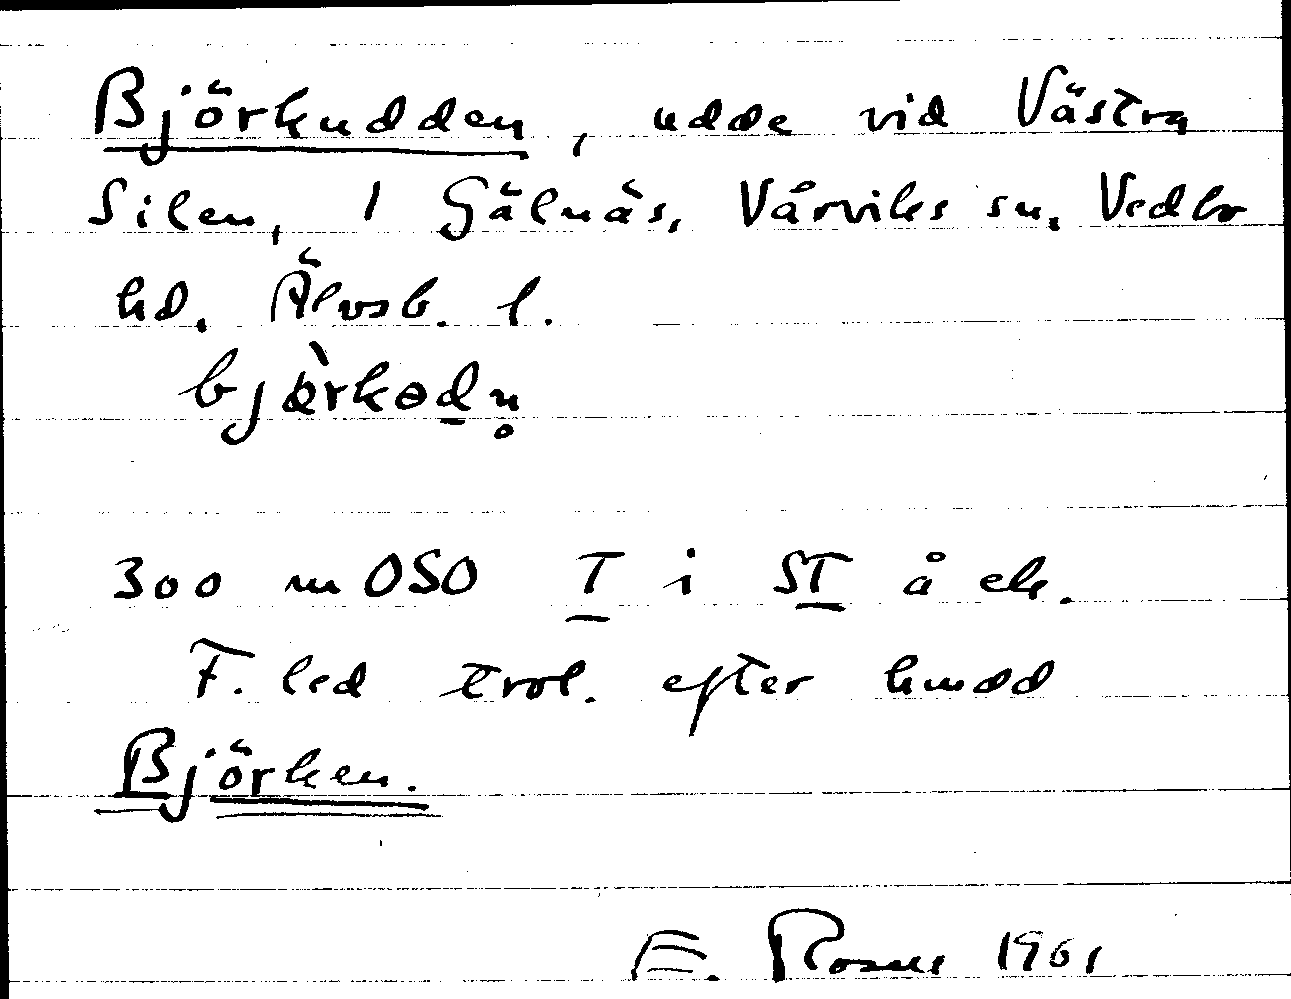 Björkudden, udde vid Västra
Silen, 1 Gälnäs, Vårviks sn, Vedbo
hd, Älvsb. l.
300 m OSO T i ST å ek.
F. led trol. efter hmdd
Björken.
E. 1961